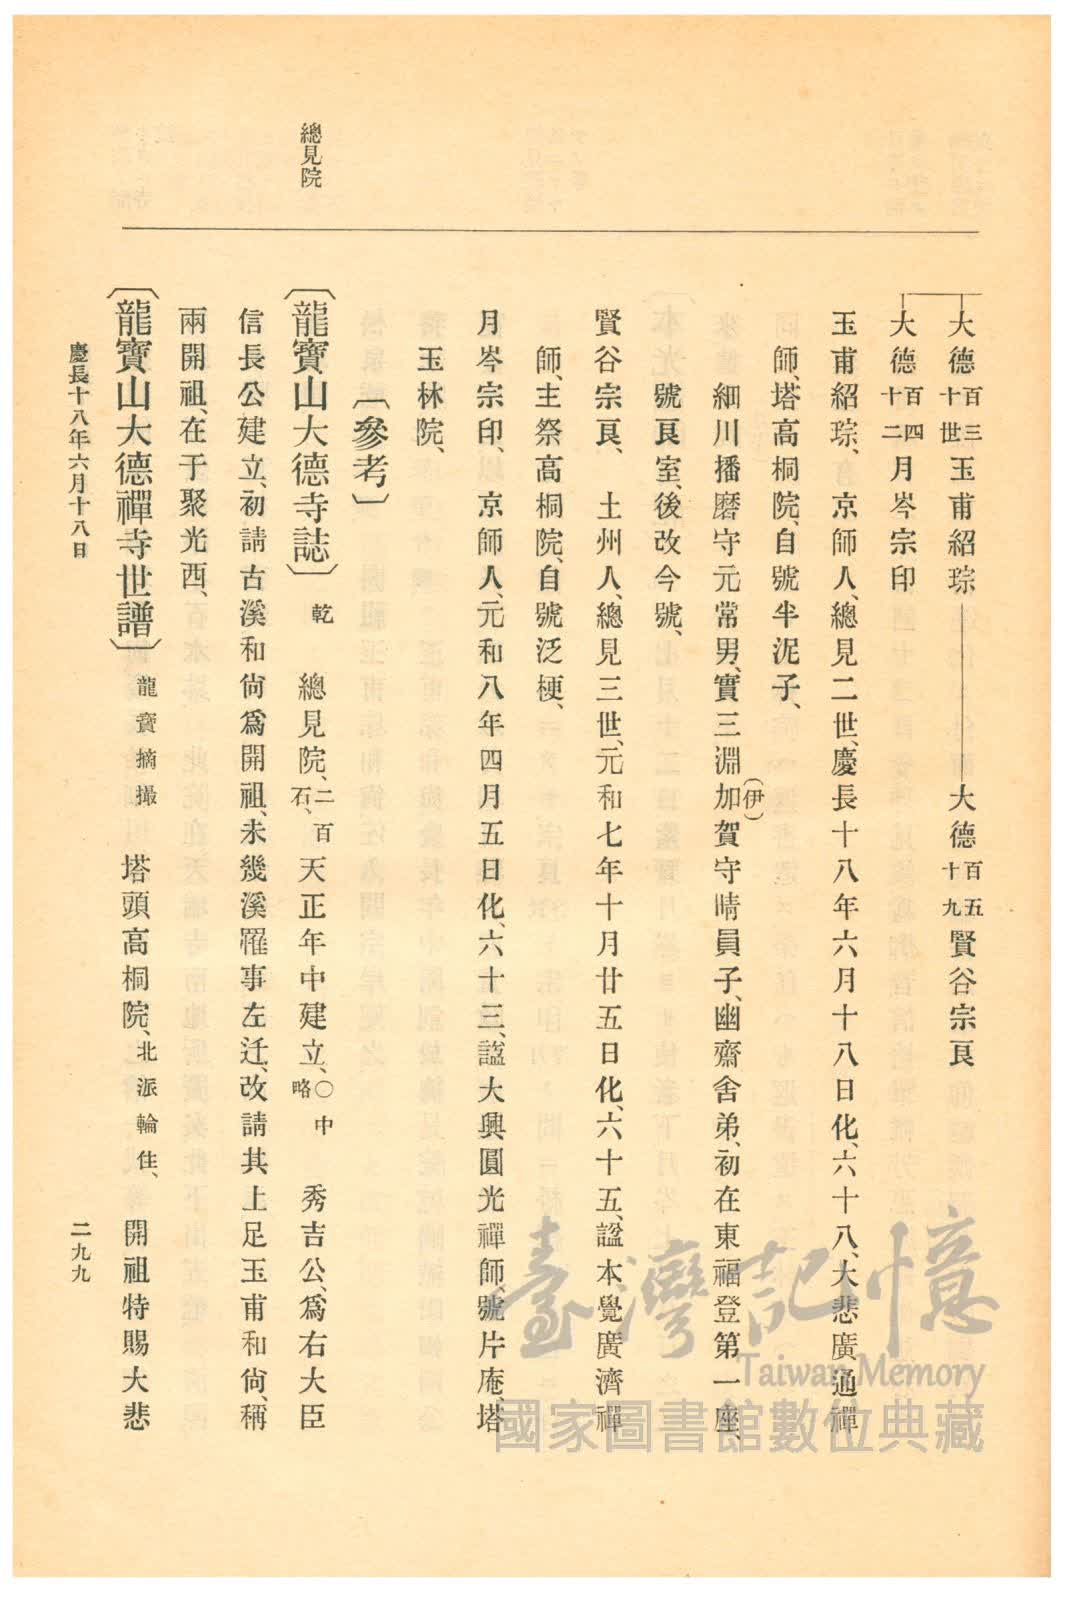 總見院
大德百三十世玉甫紹琮――大德百五十九賢谷宗良
大德百四十二月岑宗印
玉甫紹琮、京師人、總見二世、慶長十八年六月十八日化、六十八、大悲廣通禪
師、塔高桐院、自號半泥子、
細川播磨守元常男、實三淵加(伊)賀守晴員子、幽齋舍弟、初在東福登第一座、
號良室、後改今號、
賢谷宗良、土州人、總見三世、元和七年十月廿五日化、六十五、諡本覺廣濟禪
師、主祭高桐院、自號泛梗、
月岑宗印、京師人、元和八年四月五日化、六十三、諡大興圓光禪師、號片庵、塔
玉林院、
〔參考〕
〔龍寶山大德寺誌〕乾 總見院、二百石、天正年中建立、〇中略 秀吉公、爲右大臣
信長公建立、初請古溪和尙爲開祖、未幾溪罹事左迁、改請其上足玉甫和尙、稱
兩開祖、在于聚光西、
〔龍寶山大德禪寺世譜〕龍寶摘撮 塔頭高桐院、北派輪住、開祖特賜大悲
慶長十八年六月十八日
二九九
臺灣記憶
Taiwan Memory
國家圖書館數位典藏